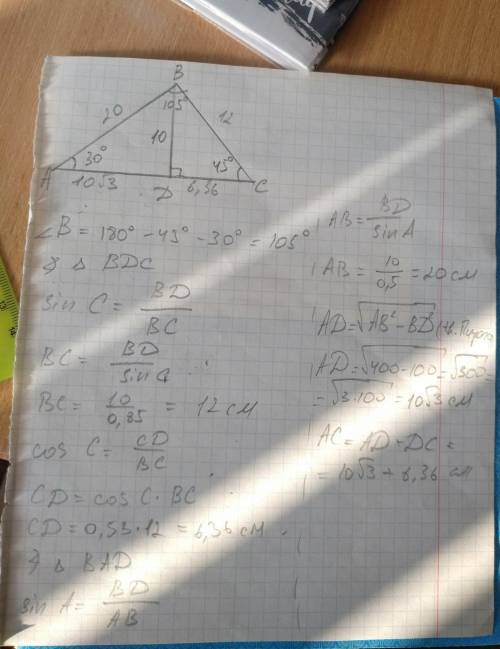 B
20
105°
12
10
A
30°
45°
C
10√3
D
6,36
∠B = 180° - 45° - 30° = 105°
Δ BDC
sin C = BD/BC
BC = BD/sin C
BC = 10/0,85 = 12 см
cos C = CD/BC
CD = cos C · BC
CD = 0,53·12 = 6,36 см.
Δ BAD
sin A = BD/AB
AB = BD/sin A
AB = 10/0,5 = 20 см
AD = √AB² - BD² (
AD = √400-100 = √300 =
= √3·100 = 10√3 см
AC = AD + DC =
= 10√3 + 6,36 см